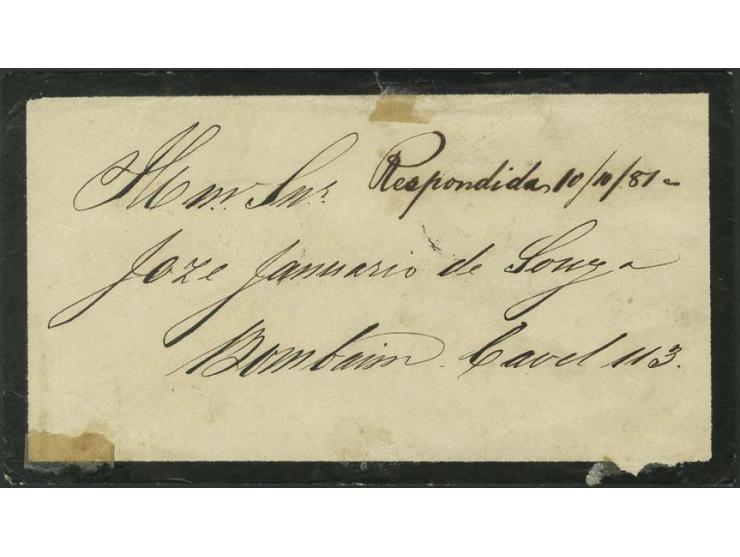 Illmo. Snr. Respondida 10/10/81
Joze Januario de Souza
Bombaim Cavel 113.